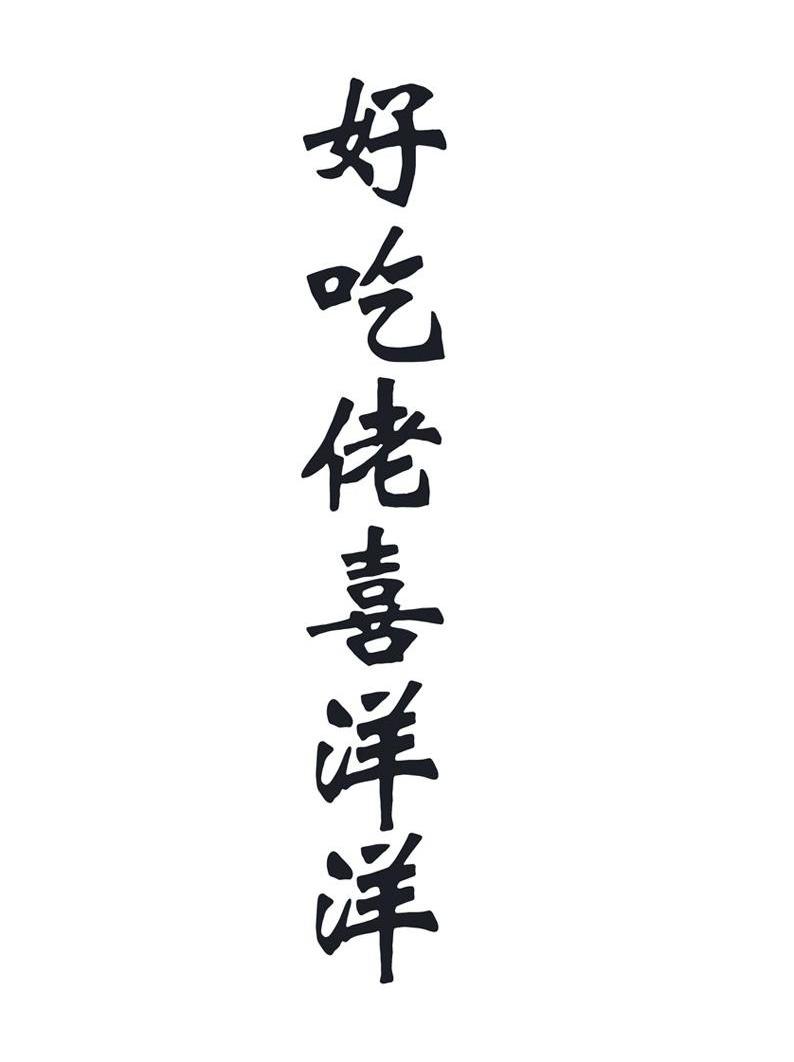 好吃佬喜洋洋